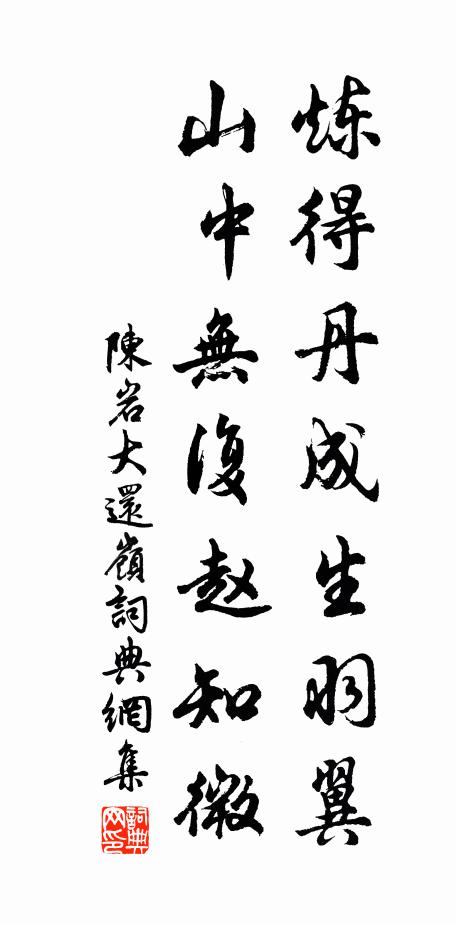 炼得丹成生羽翼
山中無復赵知微
陳岩大還嶺詞典網集
詞典网印